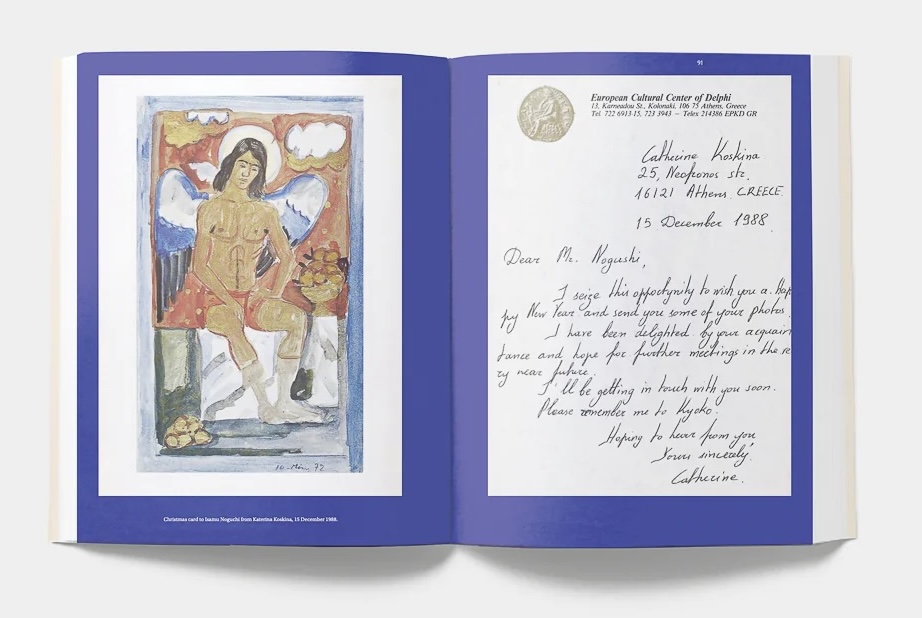 10-Μάη 72
Christmas card to Isamu Noguchi from Katerina Koskina, 15 December 1988.
91
European Cultural Center of Delphi
13, Karneadou St., Kolonaki, 106 75 Athens, Greece
Tel. 722 6913-15, 723 3943 – Telex 214386 EPKD GR
Catherine Koskina
25, str.
16121 Athens GREECE.
15 December 1988.
Dear Mr. Nogushi,
I seize this opportynity to wish you a Hap
py New Year and send you some of your photos.
I have been delighted by your acquain
tance and hope for further meetings in the ve
ry near future.
I'll be getting in touch with you soon.
Please remember me to Kyoko.
Hoping to hear from you
Yours sincerely.
Catherine.